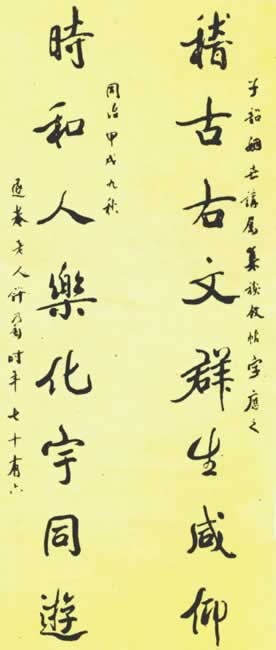 韶姻世講屬集禊敘帖字應之
稽古右文群生咸仰
同治甲戌九秋
時和人樂化宇同遊
老人許乃釗時年七十有六